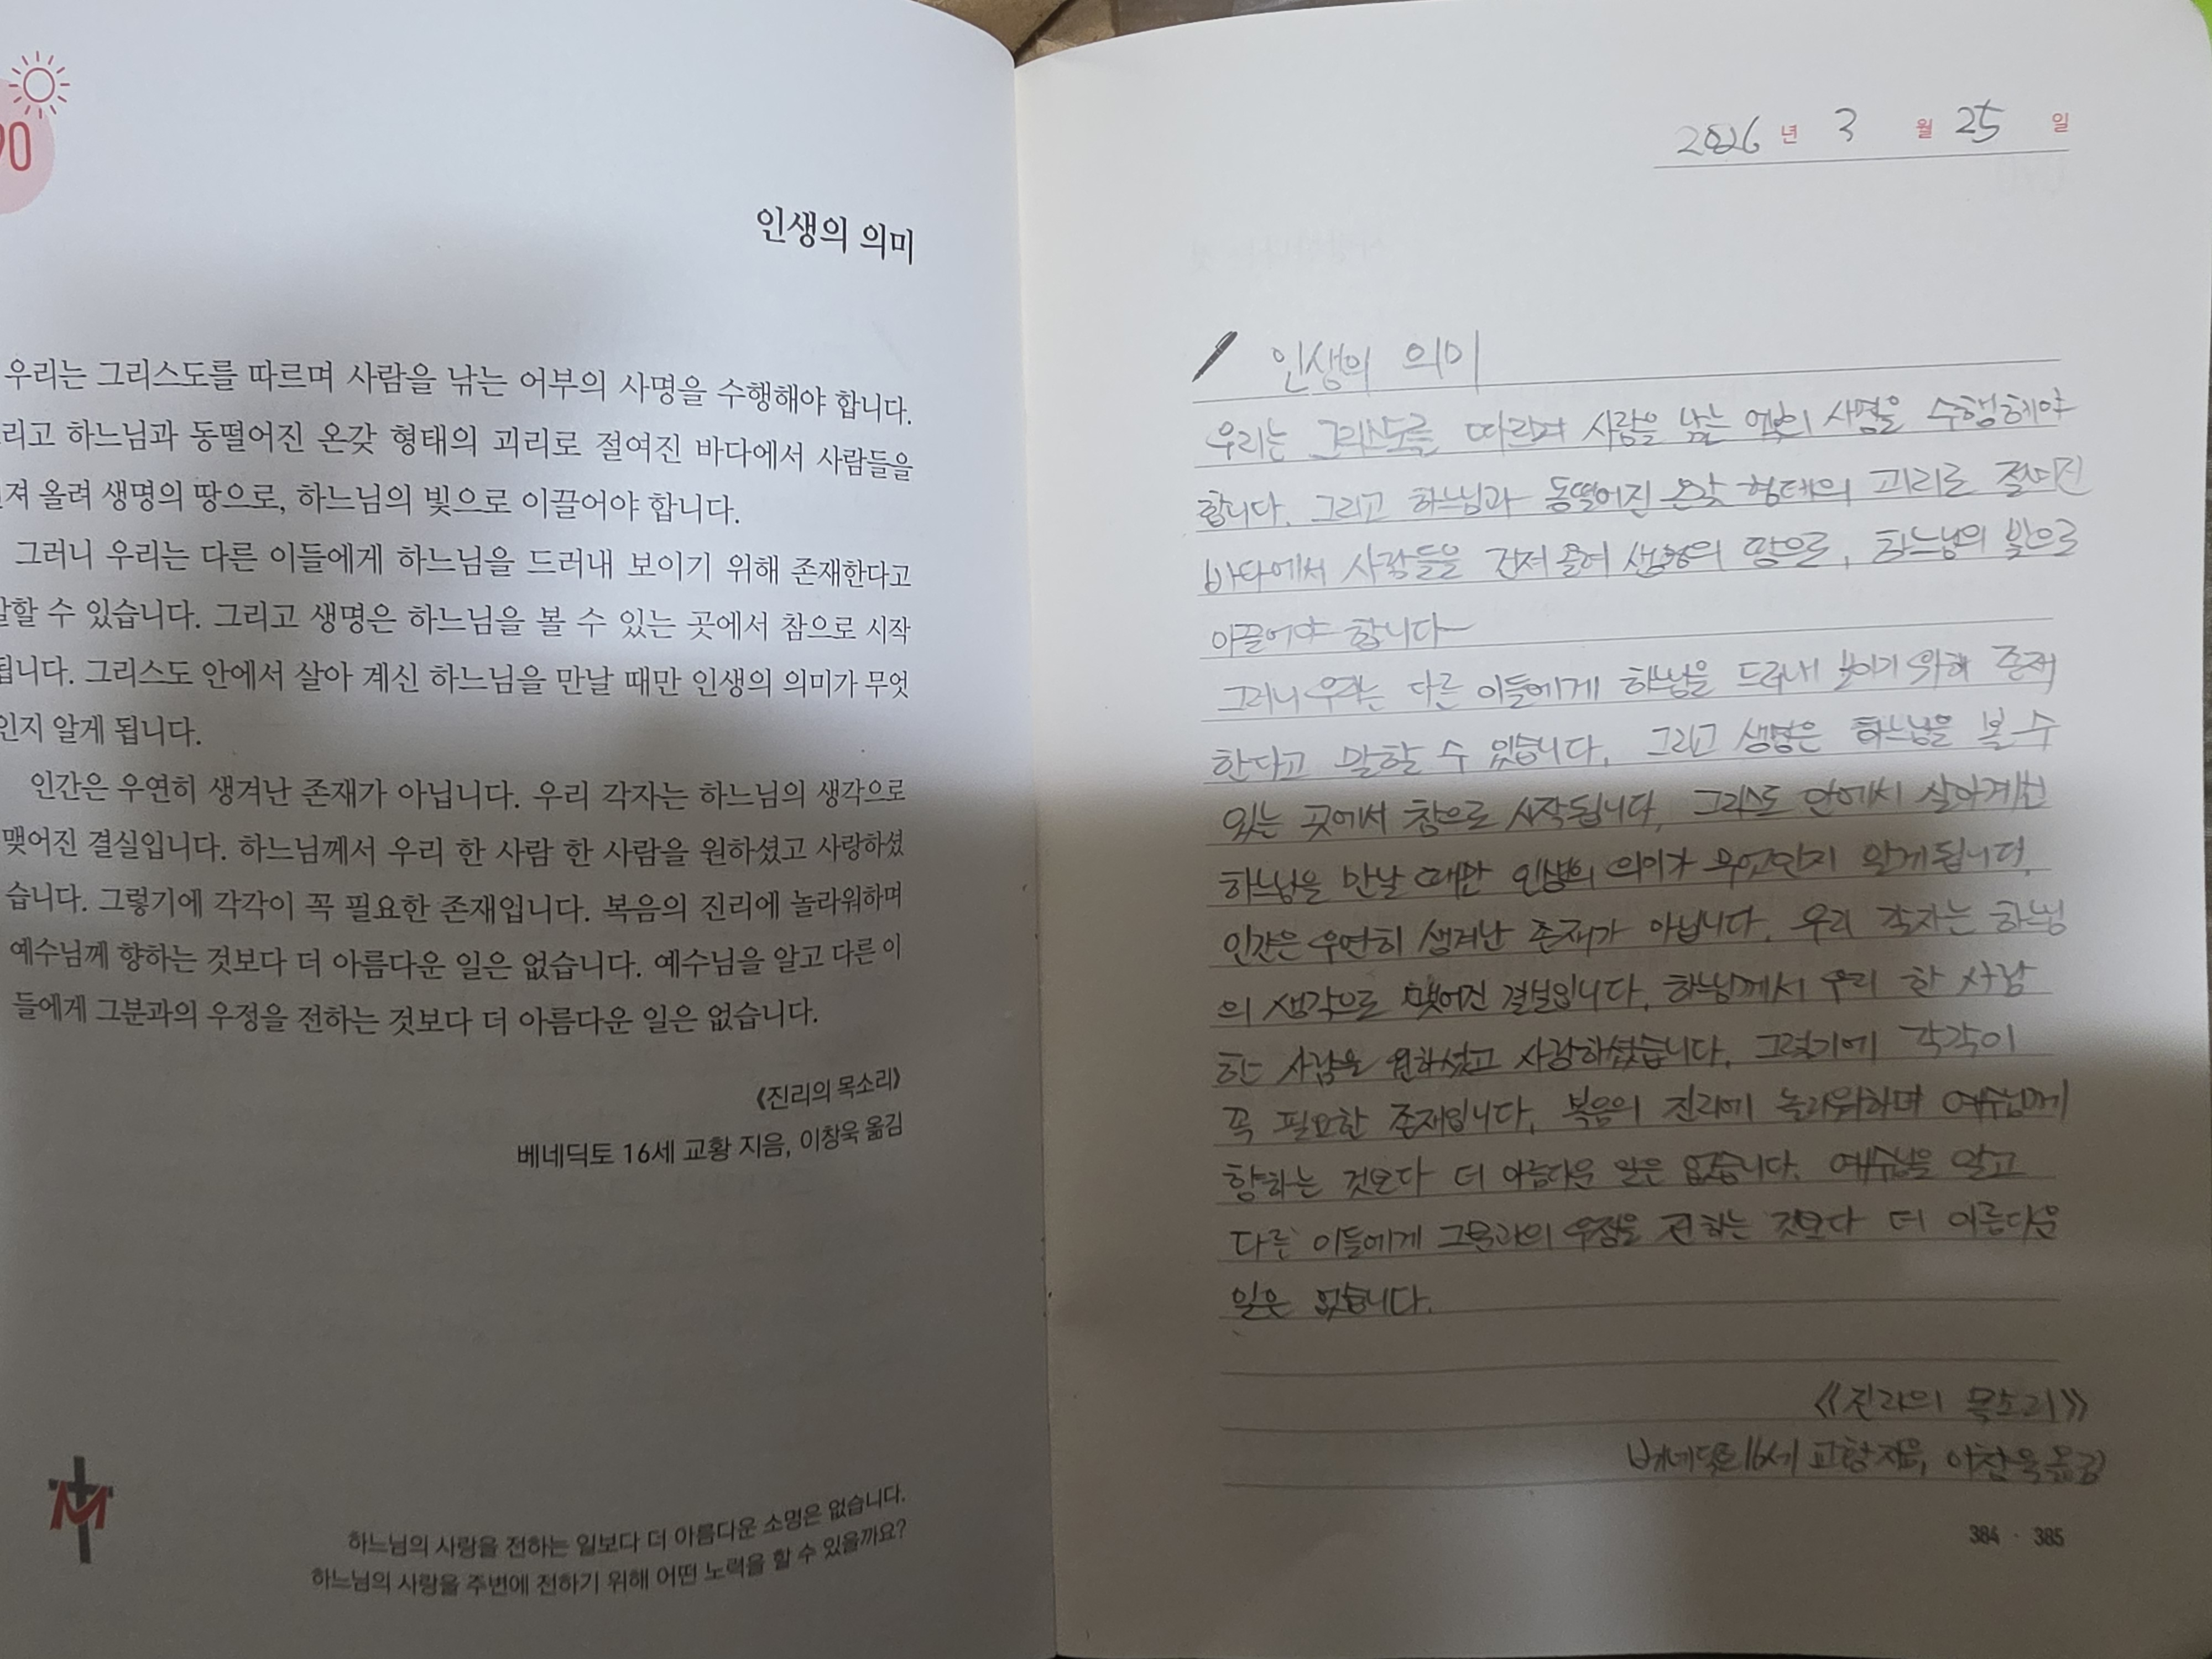 90
인생의 의미
우리는 그리스도를 따르며 사람을 낚는 어부의 사명을 수행해야 합니다.
리고 하느님과 동떨어진 온갖 형태의 괴리로 절여진 바다에서 사람들을
져 올려 생명의 땅으로, 하느님의 빛으로 이끌어야 합니다.
그러니 우리는 다른 이들에게 하느님을 드러내 보이기 위해 존재한다고
말할 수 있습니다. 그리고 생명은 하느님을 볼 수 있는 곳에서 참으로 시작
됩니다. 그리스도 안에서 살아 계신 하느님을 만날 때만 인생의 의미가 무엇
인지 알게 됩니다.
인간은 우연히 생겨난 존재가 아닙니다. 우리 각자는 하느님의 생각으로
맺어진 결실입니다. 하느님께서 우리 한 사람 한 사람을 원하셨고 사랑하셨
습니다. 그렇기에 각각이 꼭 필요한 존재입니다. 복음의 진리에 놀라워하며
예수님께 향하는 것보다 더 아름다운 일은 없습니다. 예수님을 알고 다른 이
들에게 그분과의 우정을 전하는 것보다 더 아름다운 일은 없습니다.
《진리의 목소리》
베네딕토 16세 교황 지음, 이창욱 옮김
하느님의 사랑을 전하는 일보다 더 아름다운 소명은 없습니다.
하느님의 사랑을 주변에 전하기 위해 어떤 노력을 할 수 있을까요?
2026 년 3 월 25 일
인생의 의미
우리는 그리스도를 따르며 사람을 낚는 어부의 사명을 수행해야
합니다. 그리고 하느님과 동떨어진 온갖 형태의 괴리로 절여진
바다에서 사람들을 건져 올려 생명의 땅으로, 하느님의 빛으로
이끌어야 합니다
그러니 우리는 다른 이들에게 하느님을 드러내 보이기 위해 존재
한다고 말할 수 있습니다. 그리고 생명은 하느님을 볼 수
있는 곳에서 참으로 시작됩니다. 그리스도 안에서 살아계신
하느님을 만날 때만 인생의 의미가 무엇인지 알게 됩니다.
인간은 우연히 생겨난 존재가 아닙니다. 우리 각자는 하느님
의 생각으로 맺어진 결실입니다. 하느님께서 우리 한 사람
한 사람을 원하셨고 사랑하셨습니다. 그렇기에 각각이
꼭 필요한 존재입니다. 복음의 진리에 놀라워하며 예수님께
향하는 것보다 더 아름다운 일은 없습니다. 예수님을 알고
다른 이들에게 그분과의 우정을 전하는 것보다 더 아름다운
일은 없습니다.
《진리의 목소리》
베네딕토 16세 교황 지음, 이창욱 옮김
384 · 385